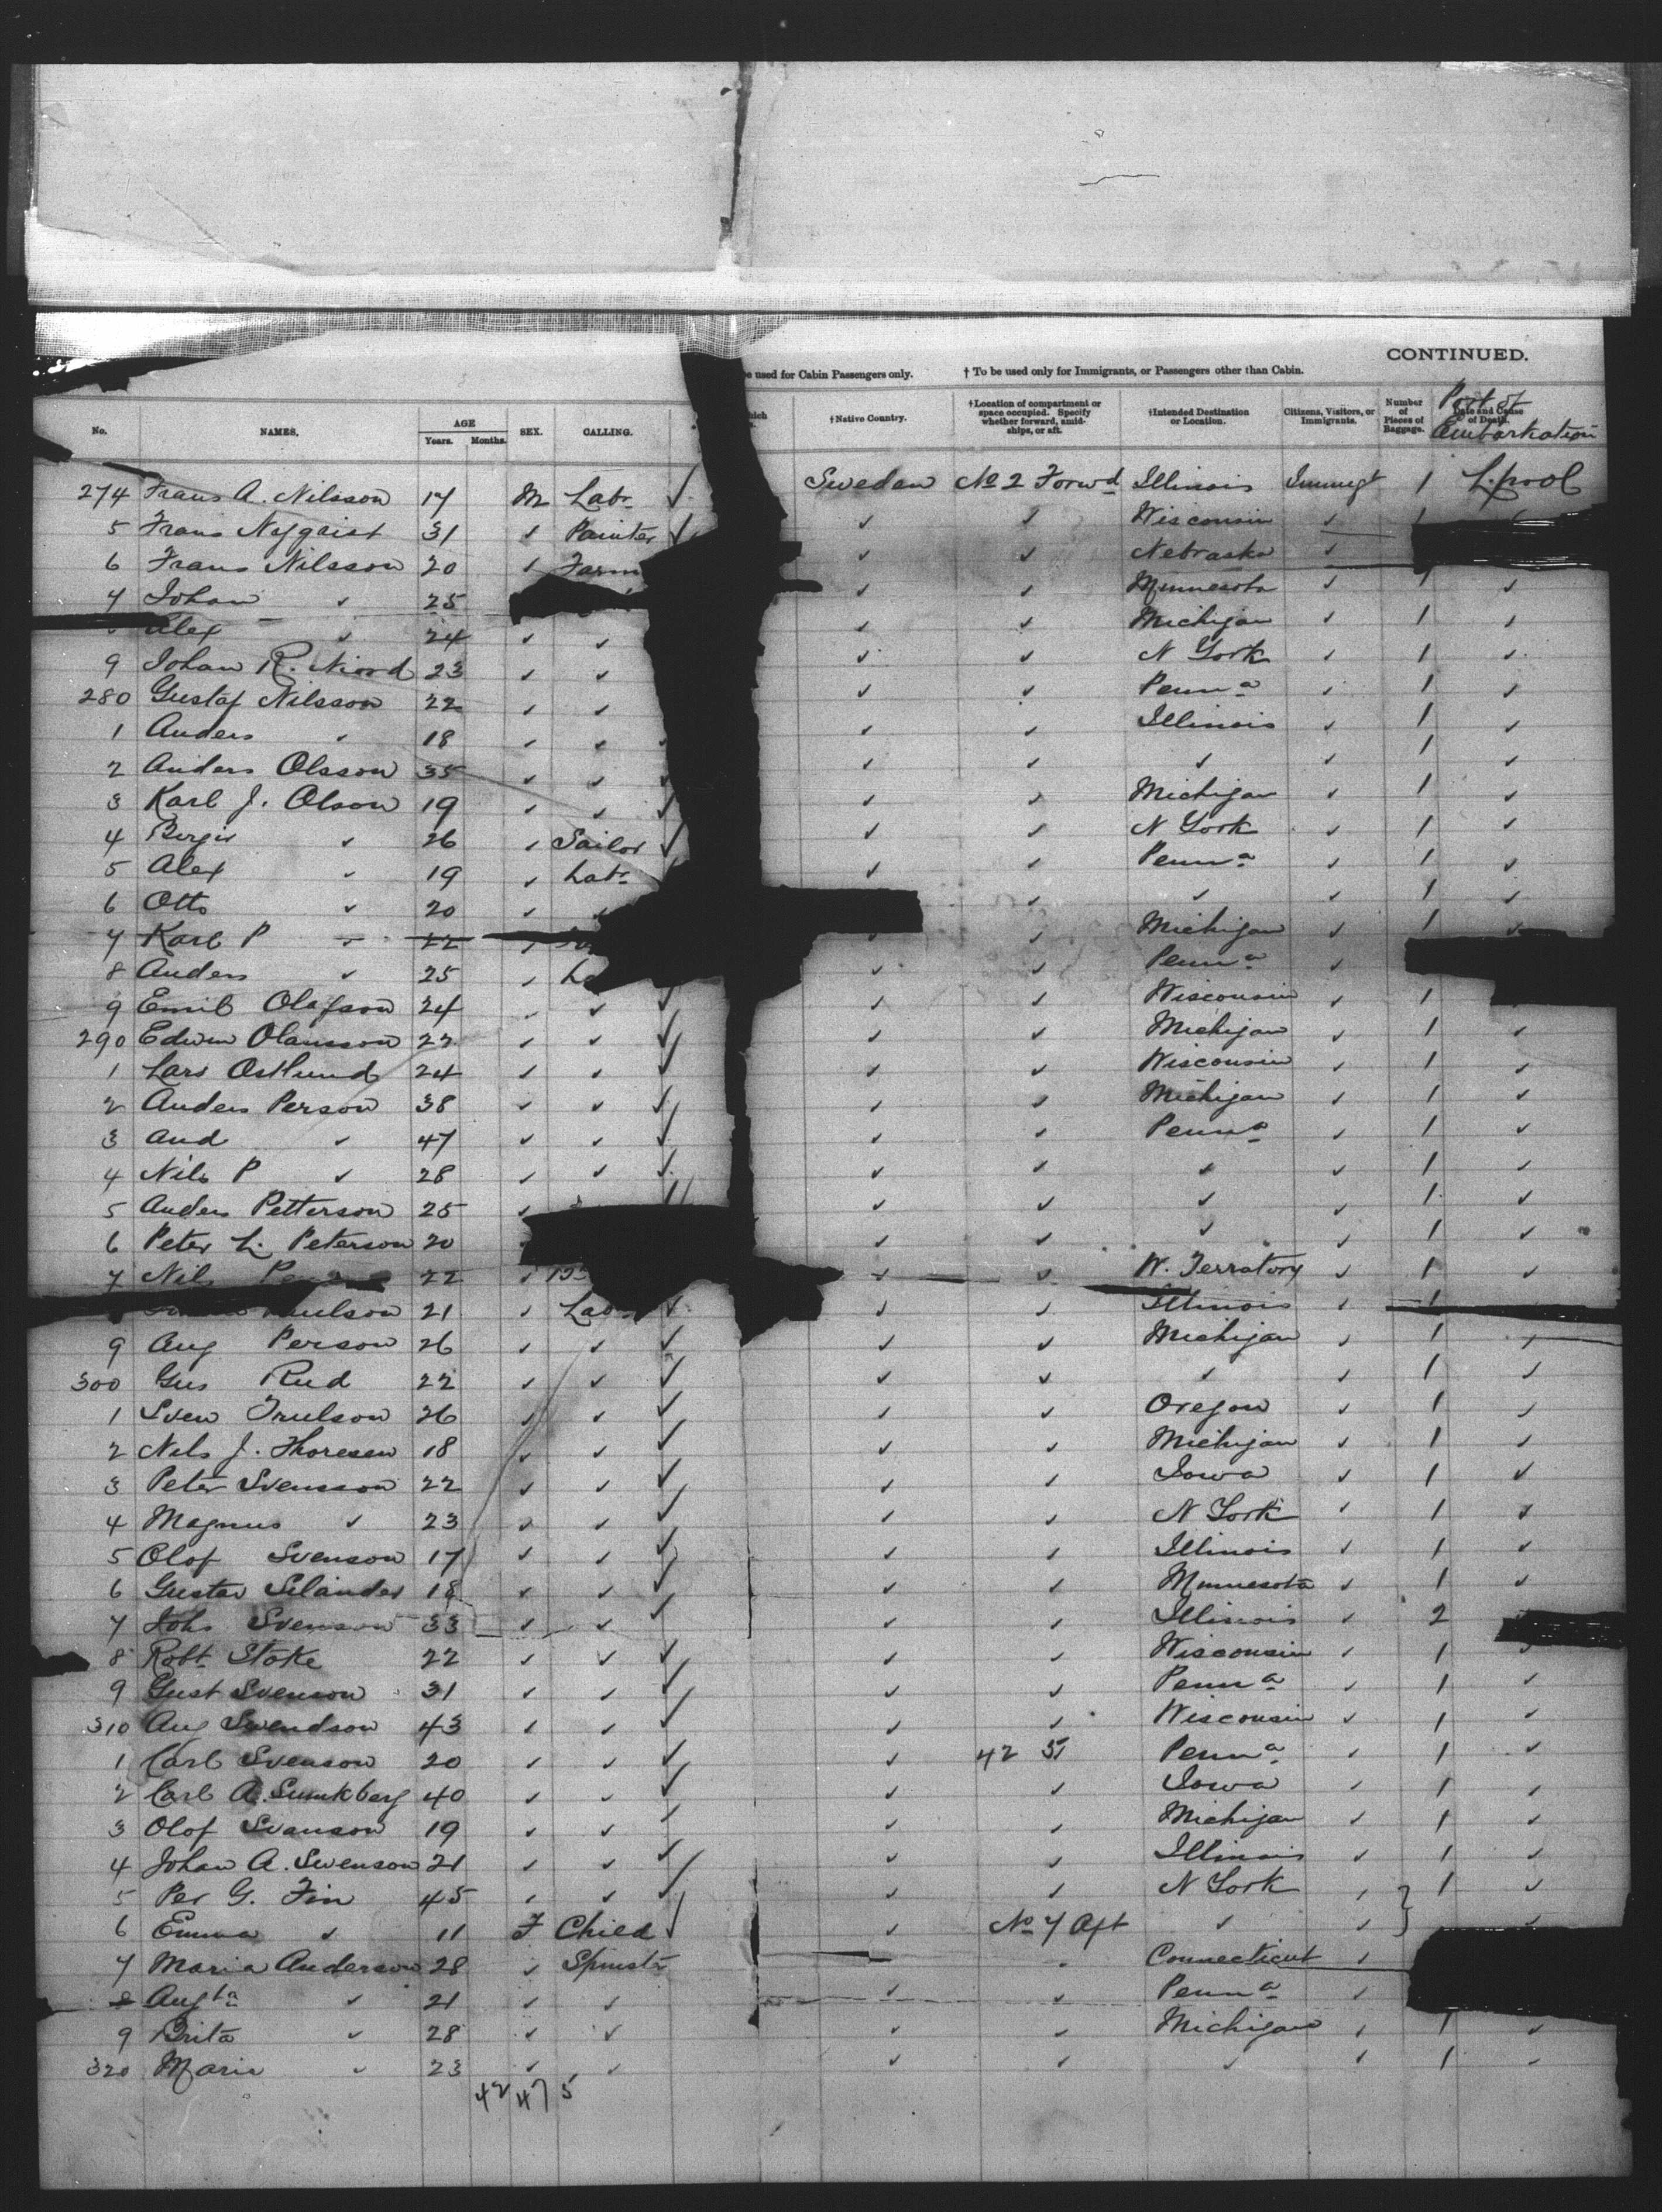 CONTINUED.
e used for Cabin Passengers only. † To be used only for Immigrants, or Passengers other than Cabin.
No. NAMES. AGE Years. Months. SEX. CALLING. †Native Country. †Location of compartment or space occupied. Specify whether forward, amidships, or aft. †Intended Destination or Location. Citizens, Visitors, or Immigrants. Number of Pieces of Baggage. Date and Cause of Death. Port of Embarkation
274 Frans A. Nilsson 17 M Labr ✓ Sweden No 2 Forwd Illinois Immigt 1 L.pool
5 Frans Nyqvist 31 ✓ Painter ✓ ✓ ✓ Wisconsin ✓ 1
6 Frans Nilsson 20 ✓ Farm ✓ ✓ Nebraska ✓
7 Johan ✓ 25 ✓ ✓ Minnesota ✓ 1 ✓
Alex ✓ 24 ✓ ✓ ✓ ✓ Michigan ✓ 1 ✓
9 Johan R. Niord 23 ✓ ✓ ✓ ✓ N York ✓ 1 ✓
280 Gustaf Nilsson 22 ✓ ✓ ✓ ✓ Penna ✓ 1 ✓
1 Anders ✓ 18 ✓ ✓ ✓ ✓ Illinois ✓ 1 ✓
2 Anders Olsson 35 ✓ ✓ ✓ ✓ ✓ ✓ 1 ✓
3 Karl J. Olson 19 ✓ ✓ ✓ ✓ ✓ Michigan ✓ 1 ✓
4 Birger ✓ 26 ✓ Sailor ✓ ✓ ✓ N York ✓ 1 ✓
5 Alex ✓ 19 ✓ Labr ✓ ✓ Penna ✓ 1 ✓
6 Otto ✓ 20 ✓ ✓ ✓ ✓ ✓ 1 ✓
7 Karl P ✓ 22 ✓ ✓ ✓ Michigan ✓ 1 ✓
8 Anders ✓ 25 ✓ La ✓ ✓ Penna ✓
9 Emil Olafson 24 ✓ ✓ ✓ ✓ ✓ Wisconsin ✓ 1
290 Edwin Olausson 22 ✓ ✓ ✓ ✓ ✓ Michigan ✓ 1 ✓
1 Lars Ostlund 24 ✓ ✓ ✓ ✓ ✓ Wisconsin ✓ 1 ✓
2 Anders Person 38 ✓ ✓ ✓ ✓ ✓ Michigan ✓ 1 ✓
3 And ✓ 47 ✓ ✓ ✓ ✓ ✓ Penna ✓ 1 ✓
4 Nils P ✓ 28 ✓ ✓ ✓ ✓ ✓ ✓ ✓ 1 ✓
5 Anders Petterson 25 ✓ ✓ ✓ ✓ ✓ ✓ 1 ✓
6 Peter L. Peterson 20 ✓ ✓ ✓ ✓ ✓ 1 ✓
7 Nils 22 ✓ ✓ ✓ W. Terratory ✓ 1 ✓
21 ✓ Labr ✓ ✓ ✓ Illinois ✓ 1
9 Aug Person 26 ✓ ✓ ✓ ✓ ✓ Michigan ✓ 1 ✓
300 Gus Rud 22 ✓ ✓ ✓ ✓ ✓ ✓ ✓ 1 ✓
1 Sven Trulson 26 ✓ ✓ ✓ ✓ ✓ Oregon ✓ 1 ✓
2 Nils J. Thoresen 18 ✓ ✓ ✓ ✓ ✓ Michigan ✓ 1 ✓
3 Peter Svensson 22 ✓ ✓ ✓ ✓ ✓ Iowa ✓ 1 ✓
4 Magnus ✓ 23 ✓ ✓ ✓ ✓ ✓ N York ✓ 1 ✓
5 Olof Svenson 17 ✓ ✓ ✓ ✓ ✓ Illinois ✓ 1 ✓
6 Gustav Silander 18 ✓ ✓ ✓ ✓ ✓ Minnesota ✓ 1 ✓
7 Johs Svenson 33 ✓ ✓ ✓ ✓ ✓ Illinois ✓ 2
8 Robt Stoke 22 ✓ ✓ ✓ ✓ ✓ Wisconsin ✓ 1 ✓
9 Gust Svenson 31 ✓ ✓ ✓ ✓ ✓ Penna ✓ 1 ✓
310 Aug Swendson 43 ✓ ✓ ✓ ✓ ✓ Wisconsin ✓ 1 ✓
1 Carl Svenson 20 ✓ ✓ ✓ ✓ 42 51 Penna ✓ 1 ✓
2 Carl A. 40 ✓ ✓ ✓ ✓ ✓ Iowa ✓ 1 ✓
3 Olof Svanson 19 ✓ ✓ ✓ ✓ ✓ Michigan ✓ 1 ✓
4 Johan A. Swenson 21 ✓ ✓ ✓ ✓ ✓ Illinois ✓ 1 ✓
5 Per G. Fin 45 ✓ ✓ ✓ ✓ ✓ N York ✓ } 1 ✓
6 Emma ✓ 11 F Child ✓ ✓ No 7 Aft ✓ ✓ ✓
7 Maria Anderson 28 ✓ Spinstr Connecticut ✓
8 Augta ✓ 21 ✓ ✓ ✓ ✓ Penna ✓
9 Brita ✓ 28 ✓ ✓ ✓ ✓ Michigan ✓ 1 ✓
320 Maria ✓ 23 ✓ ✓ ✓ ✓ ✓ ✓ 1 ✓
42 47 5